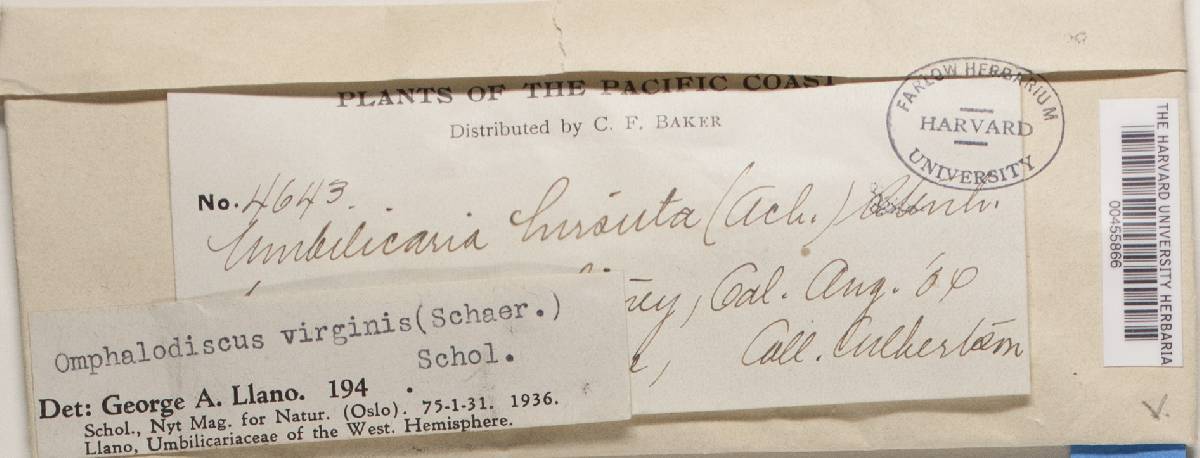 PLANTS OF THE PACIFIC COAST
Distributed by C. F. BAKER
FARLOW HERBARIUM
HARVARD
UNIVERSITY
No. 4643.
Umbilicaria hirsuta (Ach.)
ney, Cal. Aug. '04
Coll. Culbertson
Omphalodiscus virginis (Schaer.)
Schol.
Det: George A. Llano. 194 .
Schol., Nyt Mag. for Natur. (Oslo). 75-1-31. 1936.
Llano, Umbilicariaceae of the West. Hemisphere.
THE HARVARD UNIVERSITY HERBARIA
00455866